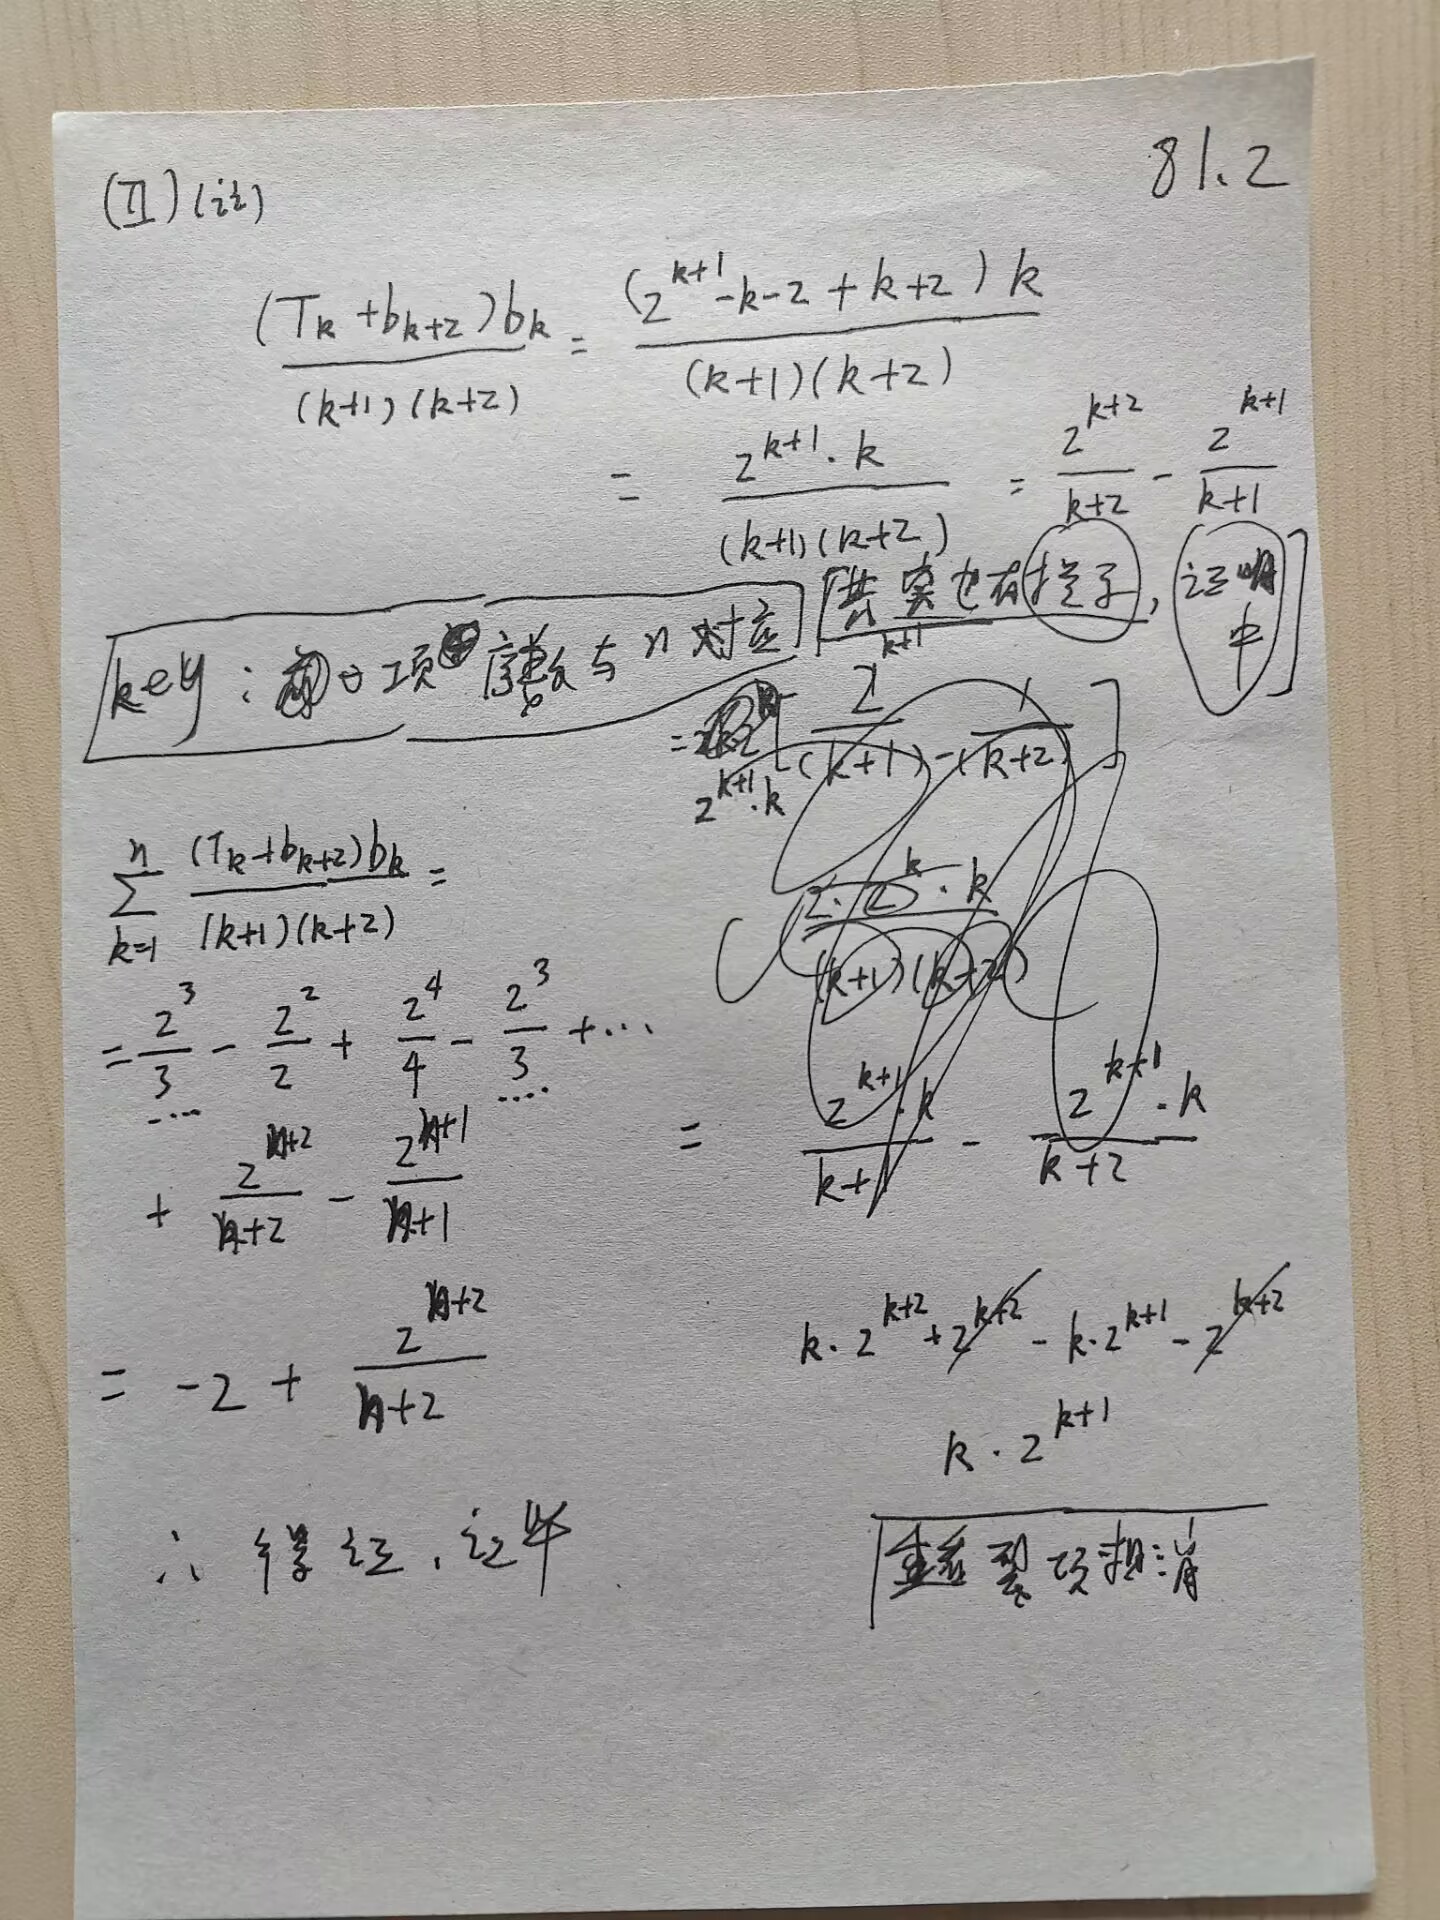 81.2
(II)(ii)
(T_k+b_{k+2})b_k / (k+1)(k+2) = (2^{k+1}-k-2+k+2)k / (k+1)(k+2)
= 2^{k+1}·k / (k+1)(k+2) = 2^{k+2}/(k+2) - 2^{k+1}/(k+1)
[其实也有提示, 证明中]
key: 项 序数与n对应
= 2^{k+1}·k [1/(k+1) - 1/(k+2)]
2·2^k·k / (k+1)(k+2)
= 2^{k+1}·k/(k+1) - 2^{k+1}·k/(k+2)
∑_{k=1}^{n} (T_k+b_{k+2})b_k / (k+1)(k+2) =
= 2^3/3 - 2^2/2 + 2^4/4 - 2^3/3 + ···
+ 2^{n+2}/(n+2) - 2^{n+1}/(n+1)
= -2 + 2^{n+2}/(n+2)
∴ 得证, 证毕
k·2^{k+2}+2^{k+2}-k·2^{k+1}-2^{k+2}
k·2^{k+1}
裂项相消